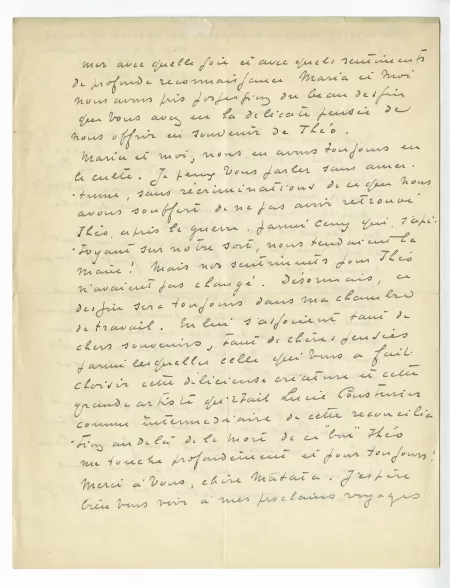 mer avec quelle joie et avec quels sentiments
de profonde reconnaissance Maria et moi
nous avons pris possession du beau dessin
que vous avez eu la délicate pensée de
nous offrir en souvenir de Théo.
Maria et moi, nous en avons toujours eu
le culte. Je peux vous parler sans amer-
tume, sans récriminations de ce que nous
avons souffert de ne pas avoir retrouvé
Théo, après la guerre, parmi ceux qui, s'api-
toyant sur notre sort, nous tendaient la
main! Mais nos sentiments pour Théo
n'avaient pas changé. Désormais, ce
dessin sera toujours dans ma chambre
de travail. En lui s'associent tant de
chers souvenirs, tant de chères pensées
parmi lesquelles celle qui vous a fait
choisir cette délicieuse créature et cette
grande artiste qu'était Lucie Cousturier
comme intermédiaire de cette réconcilia-
tion au delà de la mort de ce "bon" Théo
me touche profondément et pour toujours!
Merci à vous, chère Matata. J'espère
bien vous voir à mes prochains voyages